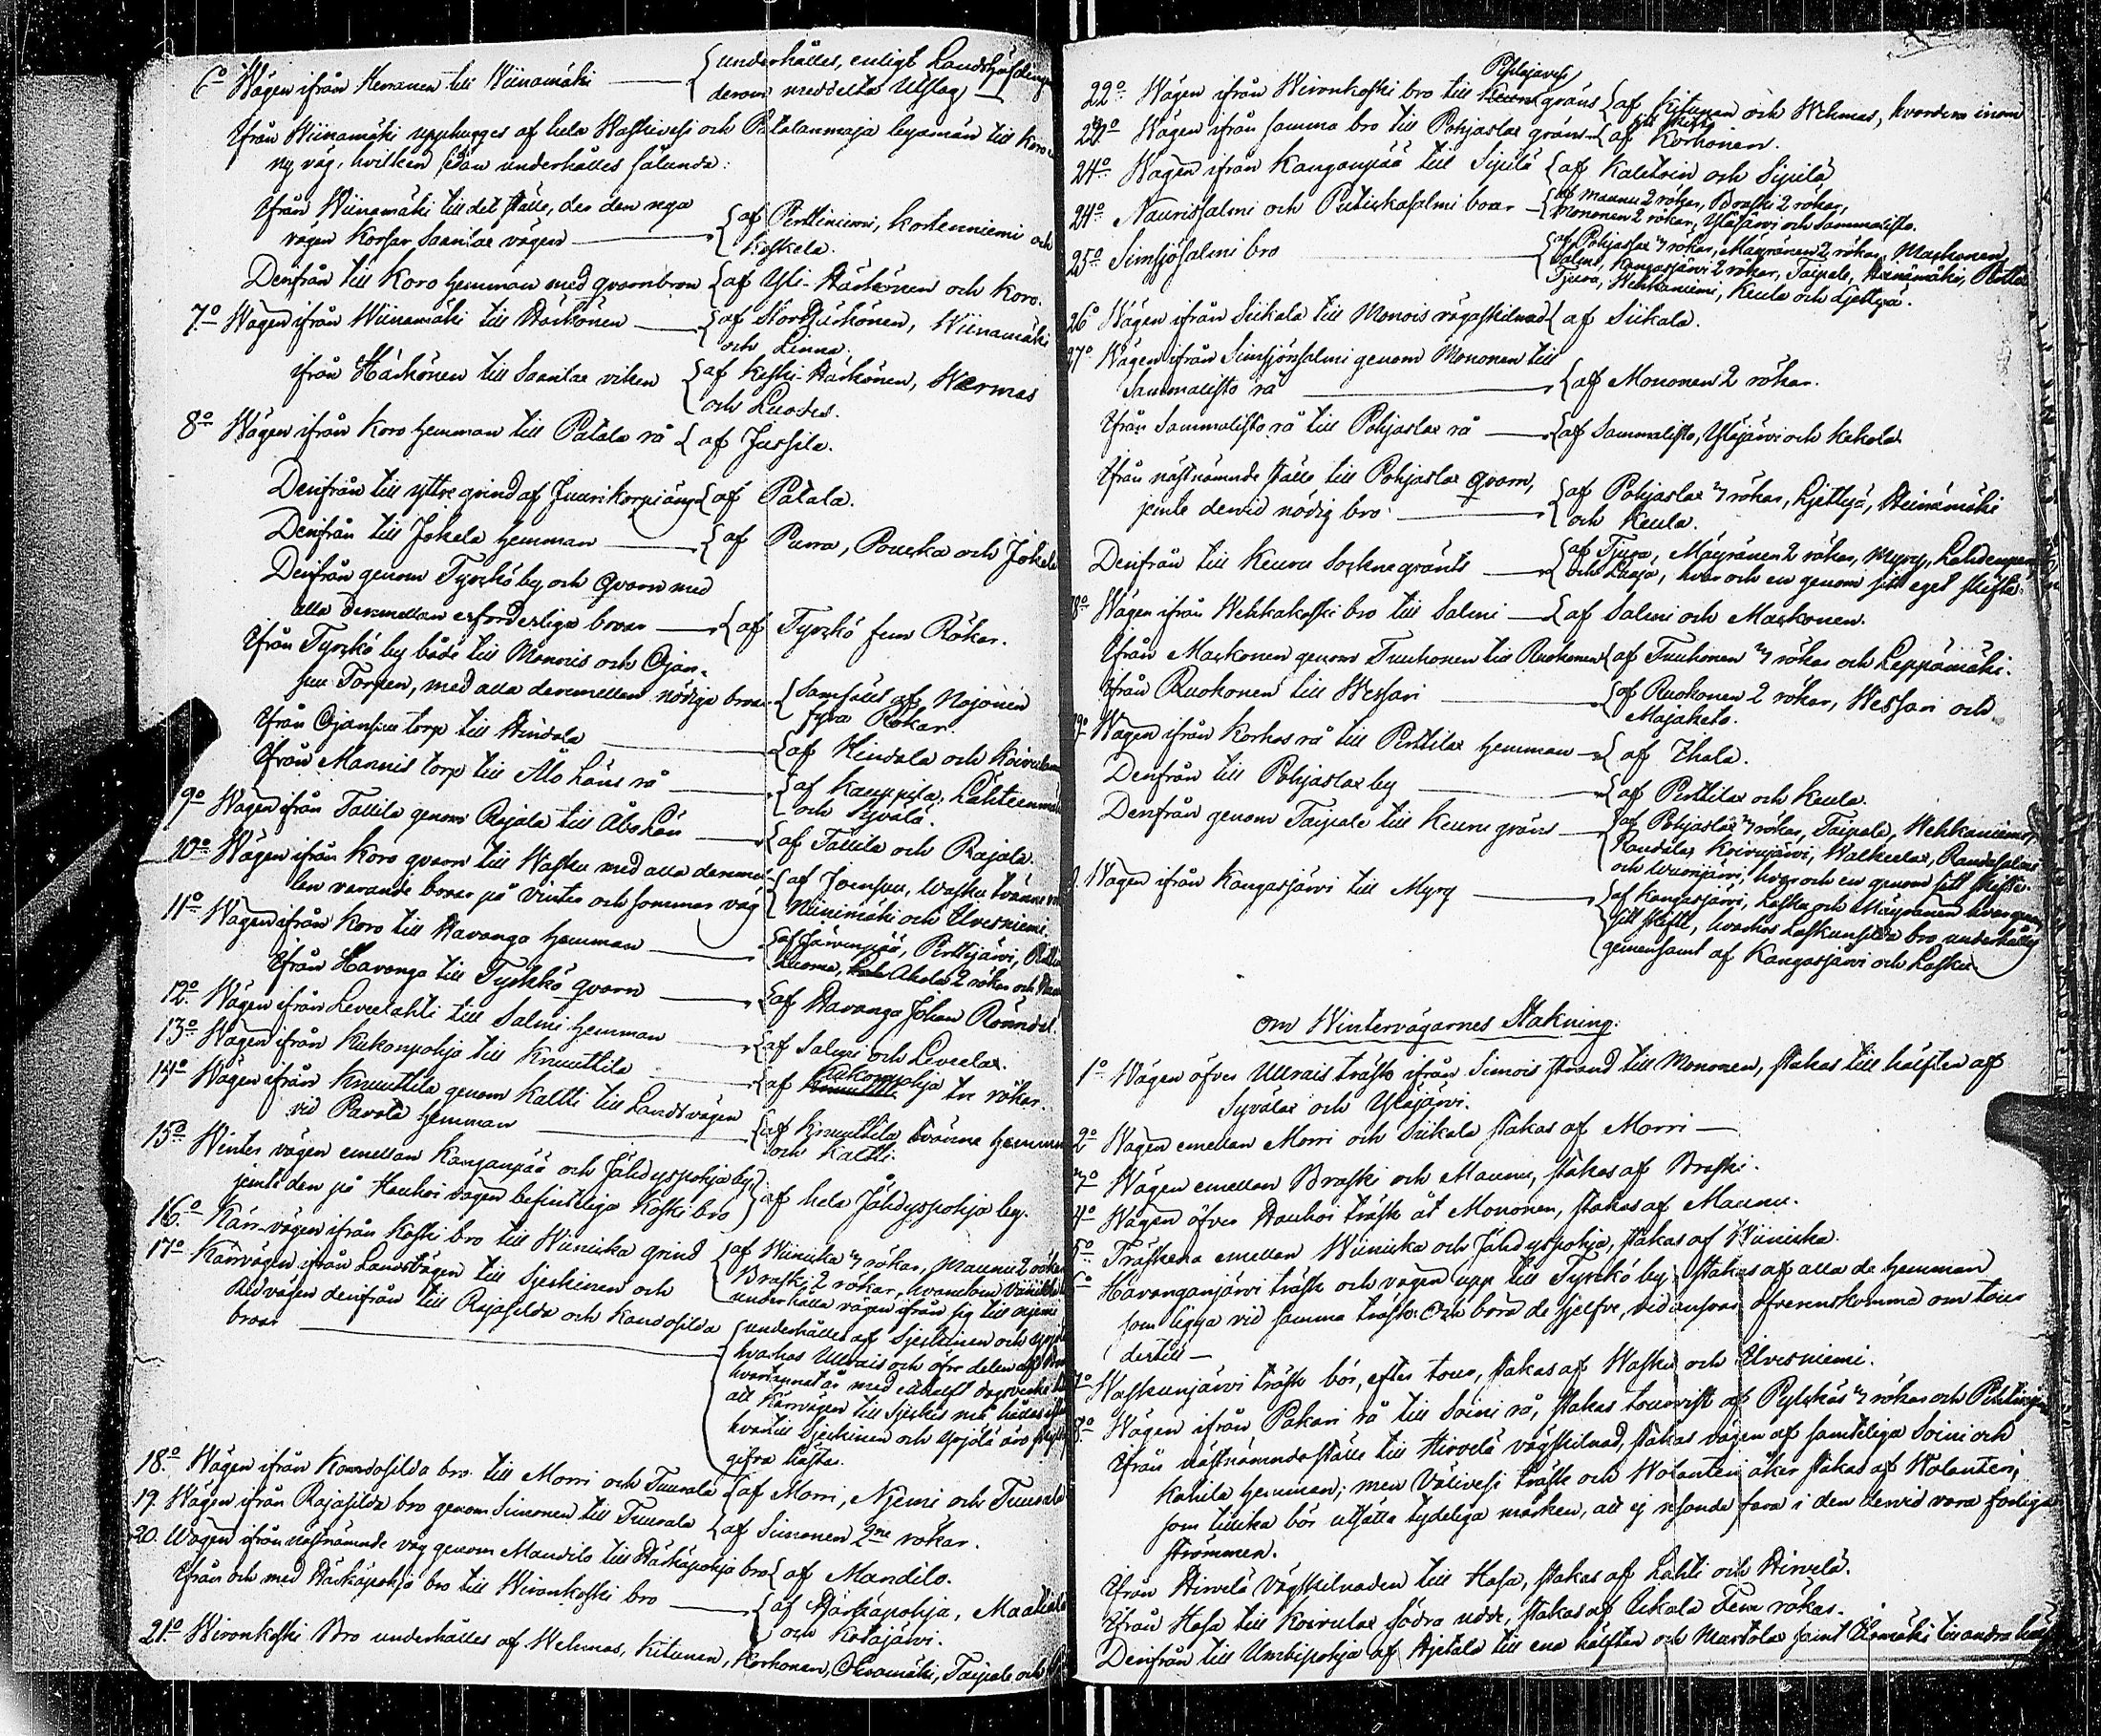 6:o Wägen ifrån Herranen till Wiinamäki — { underhålles, enligt Landshöfdinge
deröm meddelta Utslag —
Ifrån Wiinamäki upphugges af hela Waskivesi och Patalanmaja byamän till Koro
ny väg, hvilken sedan underhålles sålunda:
Ifrån Wiinamäki till det ställe, der den nya
vägen korsar Saarilax vägen — { af Perttiniemi, Kortenniemi och
Koskela.
Derifrån till Koro hemman med qvarnbron { af Yli-Härkönen och Koro.
7:o Wägen ifrån Wiinamäki till Härkönen — { af Storhärkönen, Wiinamäki
och Linna.
ifrån Härkönen till Saarilax viken { af Keski-Härkönen, Warmas
och Luodes.
8:o Wägen ifrån Koro hemman till Patala rå { af Jussila.
Derifrån till yttre grind af Juurikorpi äng { af Patala.
Derifrån till Jokela hemman — { af Purra, Pouska och Jokela
Derifrån genom Tyrkkö by och Qvarn med
alla deremellan erforderliga broar — { af Tyrkkö fem Rökar.
Ifrån Tyrkkö by både till Mannis och Ojan-
suu Torpen, med alla deremellan nödiga broar { samfäldt af Nojonen
fyra Rökar.
Ifrån Ojansuu torp till Hindala — { af Hindala och Koivula
Ifrån Mannis torp till Åbo Läns rå — { af Kauppila, Lähteenmäki
och Syvälä.
9:o Wägen ifrån Tallila genom Rajala till Åbo Län — { af Tallila och Rajala.
10:o Wägen ifrån Koro qvarn till Wasku med alla deremel-
lan varande broar på vinter och sommar väg { af Joensuu, Wasku tvänne
Niinimäki och Ilvesniemi.
11:o Wägen ifrån Koro till Havanga hemman — { af Järvenpää, Perttijärvi,
Luoma, Ahola 2 rökar och
Ifrån Havanga till Tyrkkö qvarn — { af Havanga Johan Rönndel.
12:o Wägen ifrån Leveelahti till Salmi hemman — { af Salmi och Leveelax.
13:o Wägen ifrån Kukonpohja till Knuuttila — { af Kukonpohja tre rökar.
14:o Wägen ifrån Knuuttila genom Kaltti till Landsvägen
vid Pavola hemman — { af Knuuttila tvänne hemman
och Kaltti.
15:o Winter vägen emellan Kangaspää och Jähdyspohja by
jemte den på Hauhoi vägen befintliga Koski bro } af hela Jähdyspohja by.
16:o Kärr-vägen ifrån Koski bro till Wiinicka grind { af Wiinicka 3 rökar, Maunu 2 rökar
Braski 2 rökar, hvaraf
underhålla vägen ifrån sig till
17:o Kärrvägen ifrån Landsvägen till Sjeskinen och
Ridvägen derifrån till Rajasilda och Kandosilda
broar — { underhålles af Sjeskinen och
hvarhos Ullrais och öfre delen af
hvartannat år med
att Kärrvägen till Sjeskis må
hvartill Sjeskinen och Yrjölä äro
gifva hästar.
18:o Wägen ifrån Kandosilda bro till Morri och Tuurala { af Morri, Njemi och Tuurala
19. Wägen ifrån Rajasilda bro genom Simonen till Tuurala { af Simonen 2ne rökar.
20. Wägen ifrån nästnämnde väg genom Mandilo till Härkäpohja bro { af Mandilo.
Ifrån och med Härkäpohja bro till Wironkoski bro — { af Härkäpohja,
och Kotajärvi.
21:o Wironkoski Bro underhålles af Wehmas, Kitunen, Korhonen, Ohramäki, Taipale och
22:o Wägen ifrån Wironkoski bro till Pihlajavesi gräns { af Kitunen och Wehmas, hvardera inom
sitt skifte
23:o Wägen ifrån samma bro till Pohjaslax gräns { af Korhonen.
24:o Wägen ifrån Kangaspää till Sipilä { af Kaletoin och Sipilä
24:o Naurissalmi och Pitiskasalmi broar { af Maunu 2 rökar, Braski 2 rökar,
Mononen 2 rökar, Yläjärvi och Sammalisto.
25:o Simsjösalmi bro — { af Pohjaslax 3 rökar, Mäyränen 2 rökar, Maskonen,
Salmi, Kangasjärvi 2 rökar, Taipale, Heinämäki,
Tjura, Wehkaniemi, Keula och Ljettyä.
26:o Wägen ifrån Siikala till Monois vägaskilnad { af Siikala.
27:o Wägen ifrån Simsjönsalmi genom Mononen till
Sammalisto rå — { af Mononen 2 rökar.
Ifrån Sammalisto rå till Pohjaslax rå — { af Sammalisto, Yläjärvi och Kakola.
Ifrån nästnämnde ställe till Pohjaslax Qvarn,
jemte dervid nödig bro — { af Pohjaslax 3 rökar, Ljettyä, Heinämäki
och Keula.
Derifrån till Keuru Sockne gränts — { af Tjura, Mäyränen 2 rökar, Myry, Lahdenperä
och Lauja, hvar och en genom sitt eget skifte.
28:o Wägen ifrån Wehkakoski bro till Salmi — { af Salmi och Maskonen.
Ifrån Maskonen genom Tuuhonen till Ruokonen { af Tuuhonen 3 rökar och Leppämäki.
Ifrån Ruokonen till Wessari — { af Ruokonen 2 rökar, Wessari och
Majaketo.
29:o Wägen ifrån Korhos rå till Perttilax hemman { af Ihala.
Derifrån till Pohjaslax by — { af Perttilax och Keula.
Derifrån genom Taipale till Keuru gräns — { af Pohjaslax 3 rökar, Taipale, Wehkaniemi,
Randala, Koivujärvi, Walkeelax, Randasalmi
och Wuorijärvi, hvar och en genom sitt skifte.
Wägen ifrån Kangasjärvi till Myry — { af Kangasjärvi, Lasku och Mäyränen hvar genom
sitt skifte, hvarhos Laskunsilda bro underhålles
gemensamt af Kangasjärvi och Lasku.
Om Wintervägarnes Stakning.
1:o Wägen öfver Ullrais träsk ifrån Simois strand till Mononen, stakas till hälften af
Syvälax och Yläjärvi.
2:o Wägen emellan Morri och Siikala stakas af Morri —
3:o Wägen emellan Braski och Maunu, stakas af Braski.
4:o Wägen öfver Hauhoi träsk åt Mononen, stakas af Maunu.
5:o Träskena emellan Wiinicka och Jähdyspohja, stakas af Wiinicka.
6:o Havanganjärvi träsk och vägen upp till Tyrkkö by, stakas af alla de hemman
som ligga vid samma träsk. Och böra de sjelfve, vid ansvar öfverenskomma om tour
dertill —
7:o Waskunjärvi träsk bör, efter tour, stakas af Wasku och Ilvesniemi.
8:o Wägen ifrån Pakari rå till Soini rå, stakas tourvist af Pylckäs 3 rökar och
Ifrån nästnämnda ställe till Hirvelä vägskilnad, stakas vägen af samtelige Soini och
Kahila hemman; men Välivesi träsk och Wolanten åker stakas af Wolanten,
som tillika bör utsätta tydeliga märken, att ej resande fara i den dervid vara farliga
strömmen.
Ifrån Hirvelä Vägskilnaden till Hasa, stakas af Lahti och Hirvelä.
Ifrån Hasa till Koivulax södra udde, stakas af Uskala Fem rökar.
Derifrån till Umbipohja af Hjetala till ena hälften och Martola samt till andra